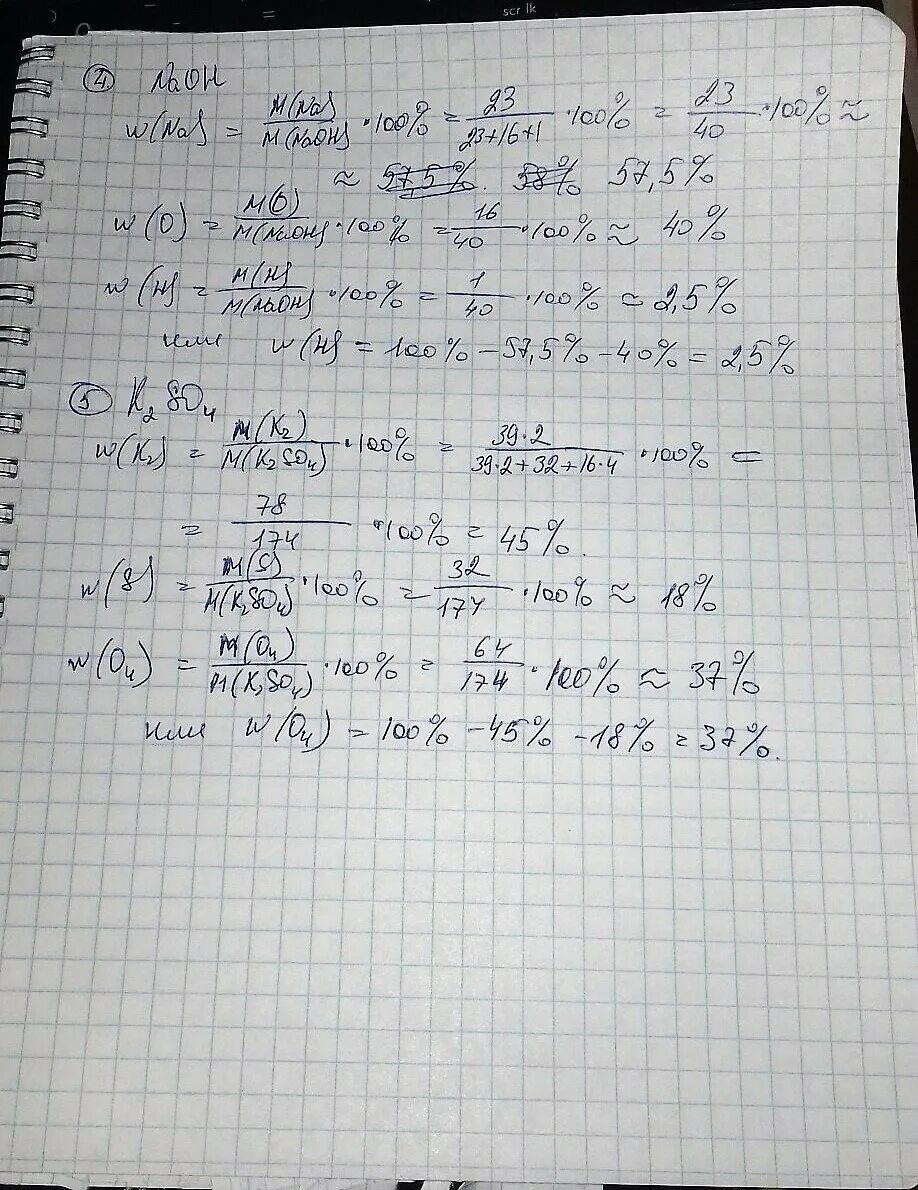 scr lk
④ NaOH
w(Na) = M(Na)/M(NaOH) · 100% = 23/23+16+1 · 100% = 23/40 · 100% ≈
≈ 57,5%. 58% 57,5%
w(O) = M(O)/M(NaOH) · 100% = 16/40 · 100% ≈ 40%
w(H) = M(H)/M(NaOH) · 100% = 1/40 · 100% = 2,5%
или w(H) = 100% - 57,5% - 40% = 2,5%
⑤ K₂SO₄
w(K₂) = M(K₂)/M(K₂SO₄) · 100% = 39·2/39·2+32+16·4 · 100% =
= 78/174 · 100% = 45%.
w(S) = M(S)/M(K₂SO₄) · 100% = 32/174 · 100% ≈ 18%
w(O₄) = M(O₄)/M(K₂SO₄) · 100% = 64/174 · 100% ≈ 37%
или w(O₄) = 100% - 45% - 18% = 37%.